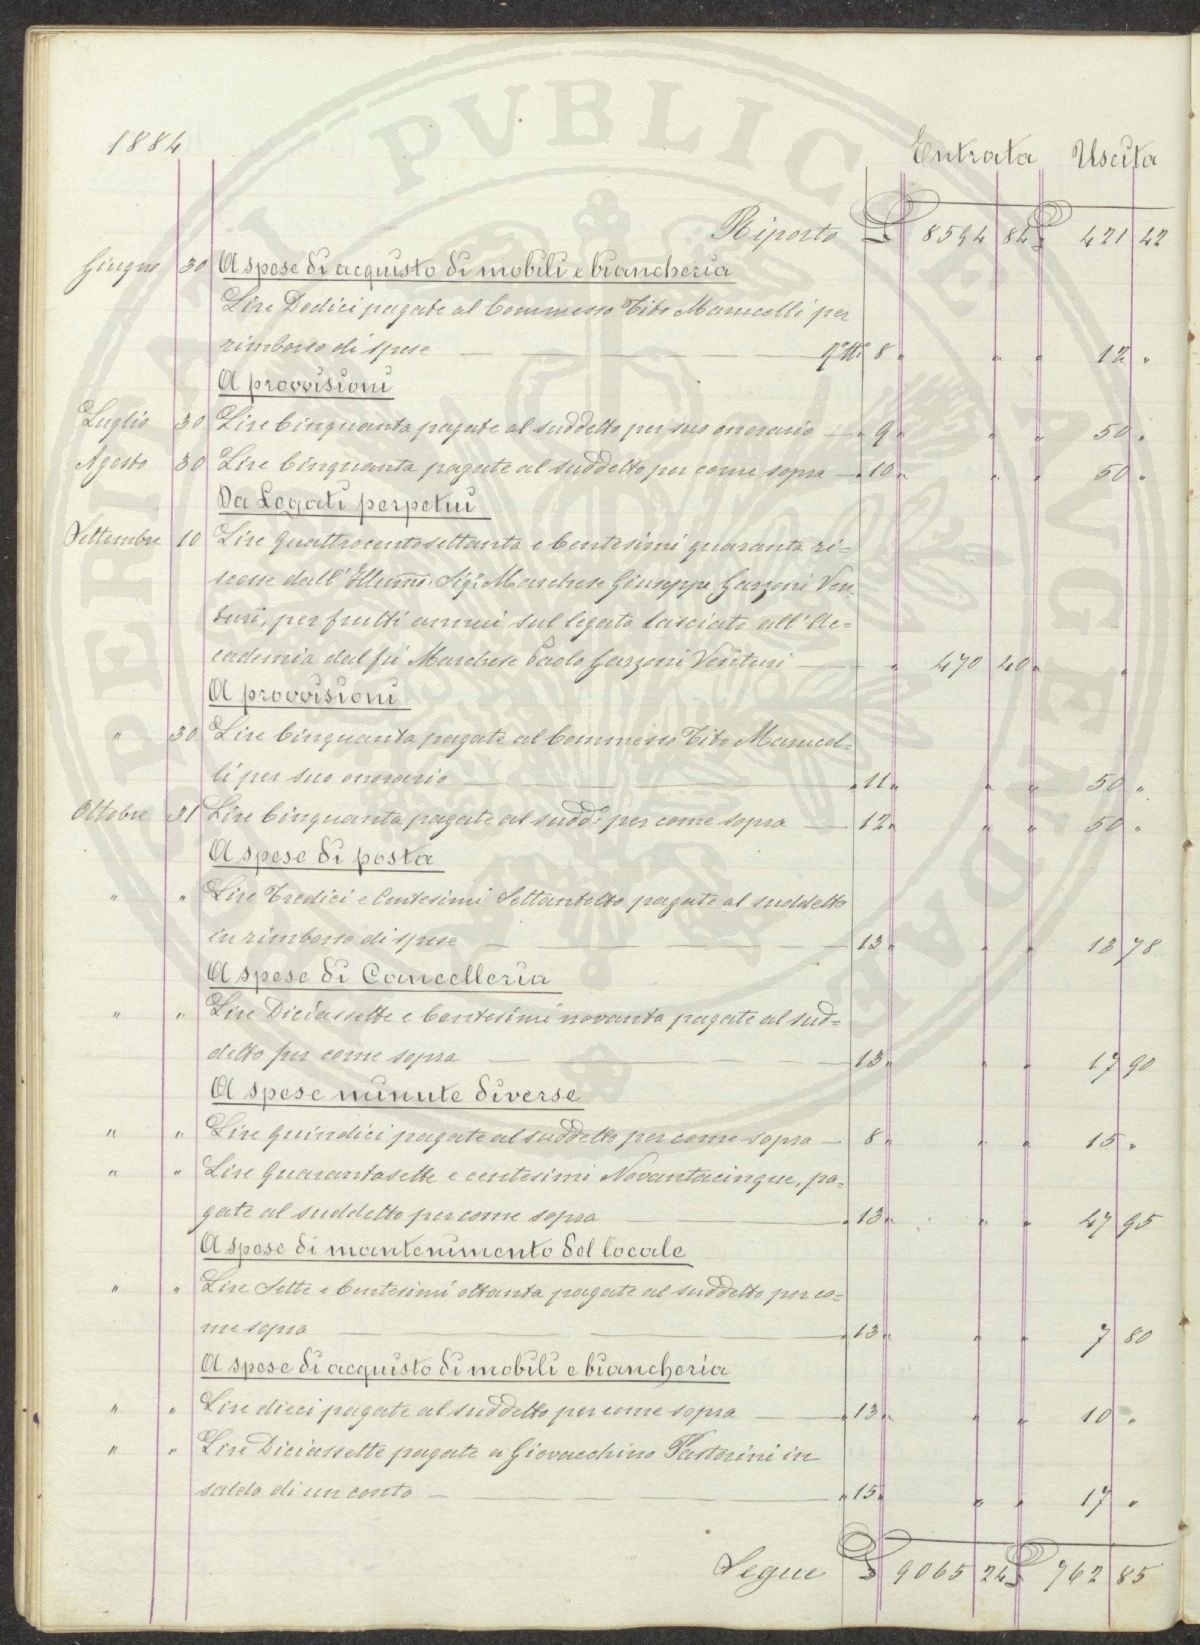 1884
Entrata Uscita
Riporto £ 8594 84 £ 421 42
Giugno 30 A spese di acquisto di mobili e biancheria
Lire Dodici pagate al Commesso Tito Marucelli per
rimborso di spese 8 " " " 12 "
A provvisioni
Luglio 30 Lire Cinquanta pagate al suddetto per suo onorario " 9 " " " 50 "
Agosto 30 Lire Cinquanta pagate al suddetto per come sopra " 10 " " " 50 "
Da Legati perpetui
Settembre 10 Lire Quattrocentosettanta e Centesimi quaranta ri=
scosse dall' Illumo. Sigr. Marchese Giuseppe Garzoni Ven
turi, per frutti annui sul legato lasciato all'Ac=
cademia dal fu Marchese Paolo Garzoni Venturi " 470 40 " "
A provvisioni
" 30 Lire Cinquanta pagate al Commesso Tito Marucel=
li per suo onorario " 11 " " " 50 "
Ottobre 31 Lire Cinquanta pagate al sudd° per come sopra " 12 " " " 50 "
A spese di posta
" " Lire Tredici e Centesimi Settantotto pagate al suddetto
in rimborso di spese " 13 " " " 13 78
A spese di Cancelleria
" " Lire Diciassette e Centesimi novanta pagate al sud=
detto per come sopra " 13 " " " 17 90
A spese minute diverse
" " Lire Quindici pagate al suddetto per come sopra 8 " " " 15 "
" " Lire Quarantasette e centesimi Novantacinque, pa=
gate al suddetto per come sopra " 13 " " " 47 95
A spese di mantenimento del locale
" " Lire Sette e Centesimi ottanta pagate al suddetto per co=
me sopra " 13 " " " 7 80
A spese di acquisto di mobili e biancheria
" " Lire dieci pagate al suddetto per come sopra " 13 " " " 10 "
" " Lire Diciassette pagate a Giovacchino Pastorini in
saldo di un conto " 15 " " " 17 "
Segue £ 9065 24 £ 762 85
PERITATI PVBLICAE AVGENDAE